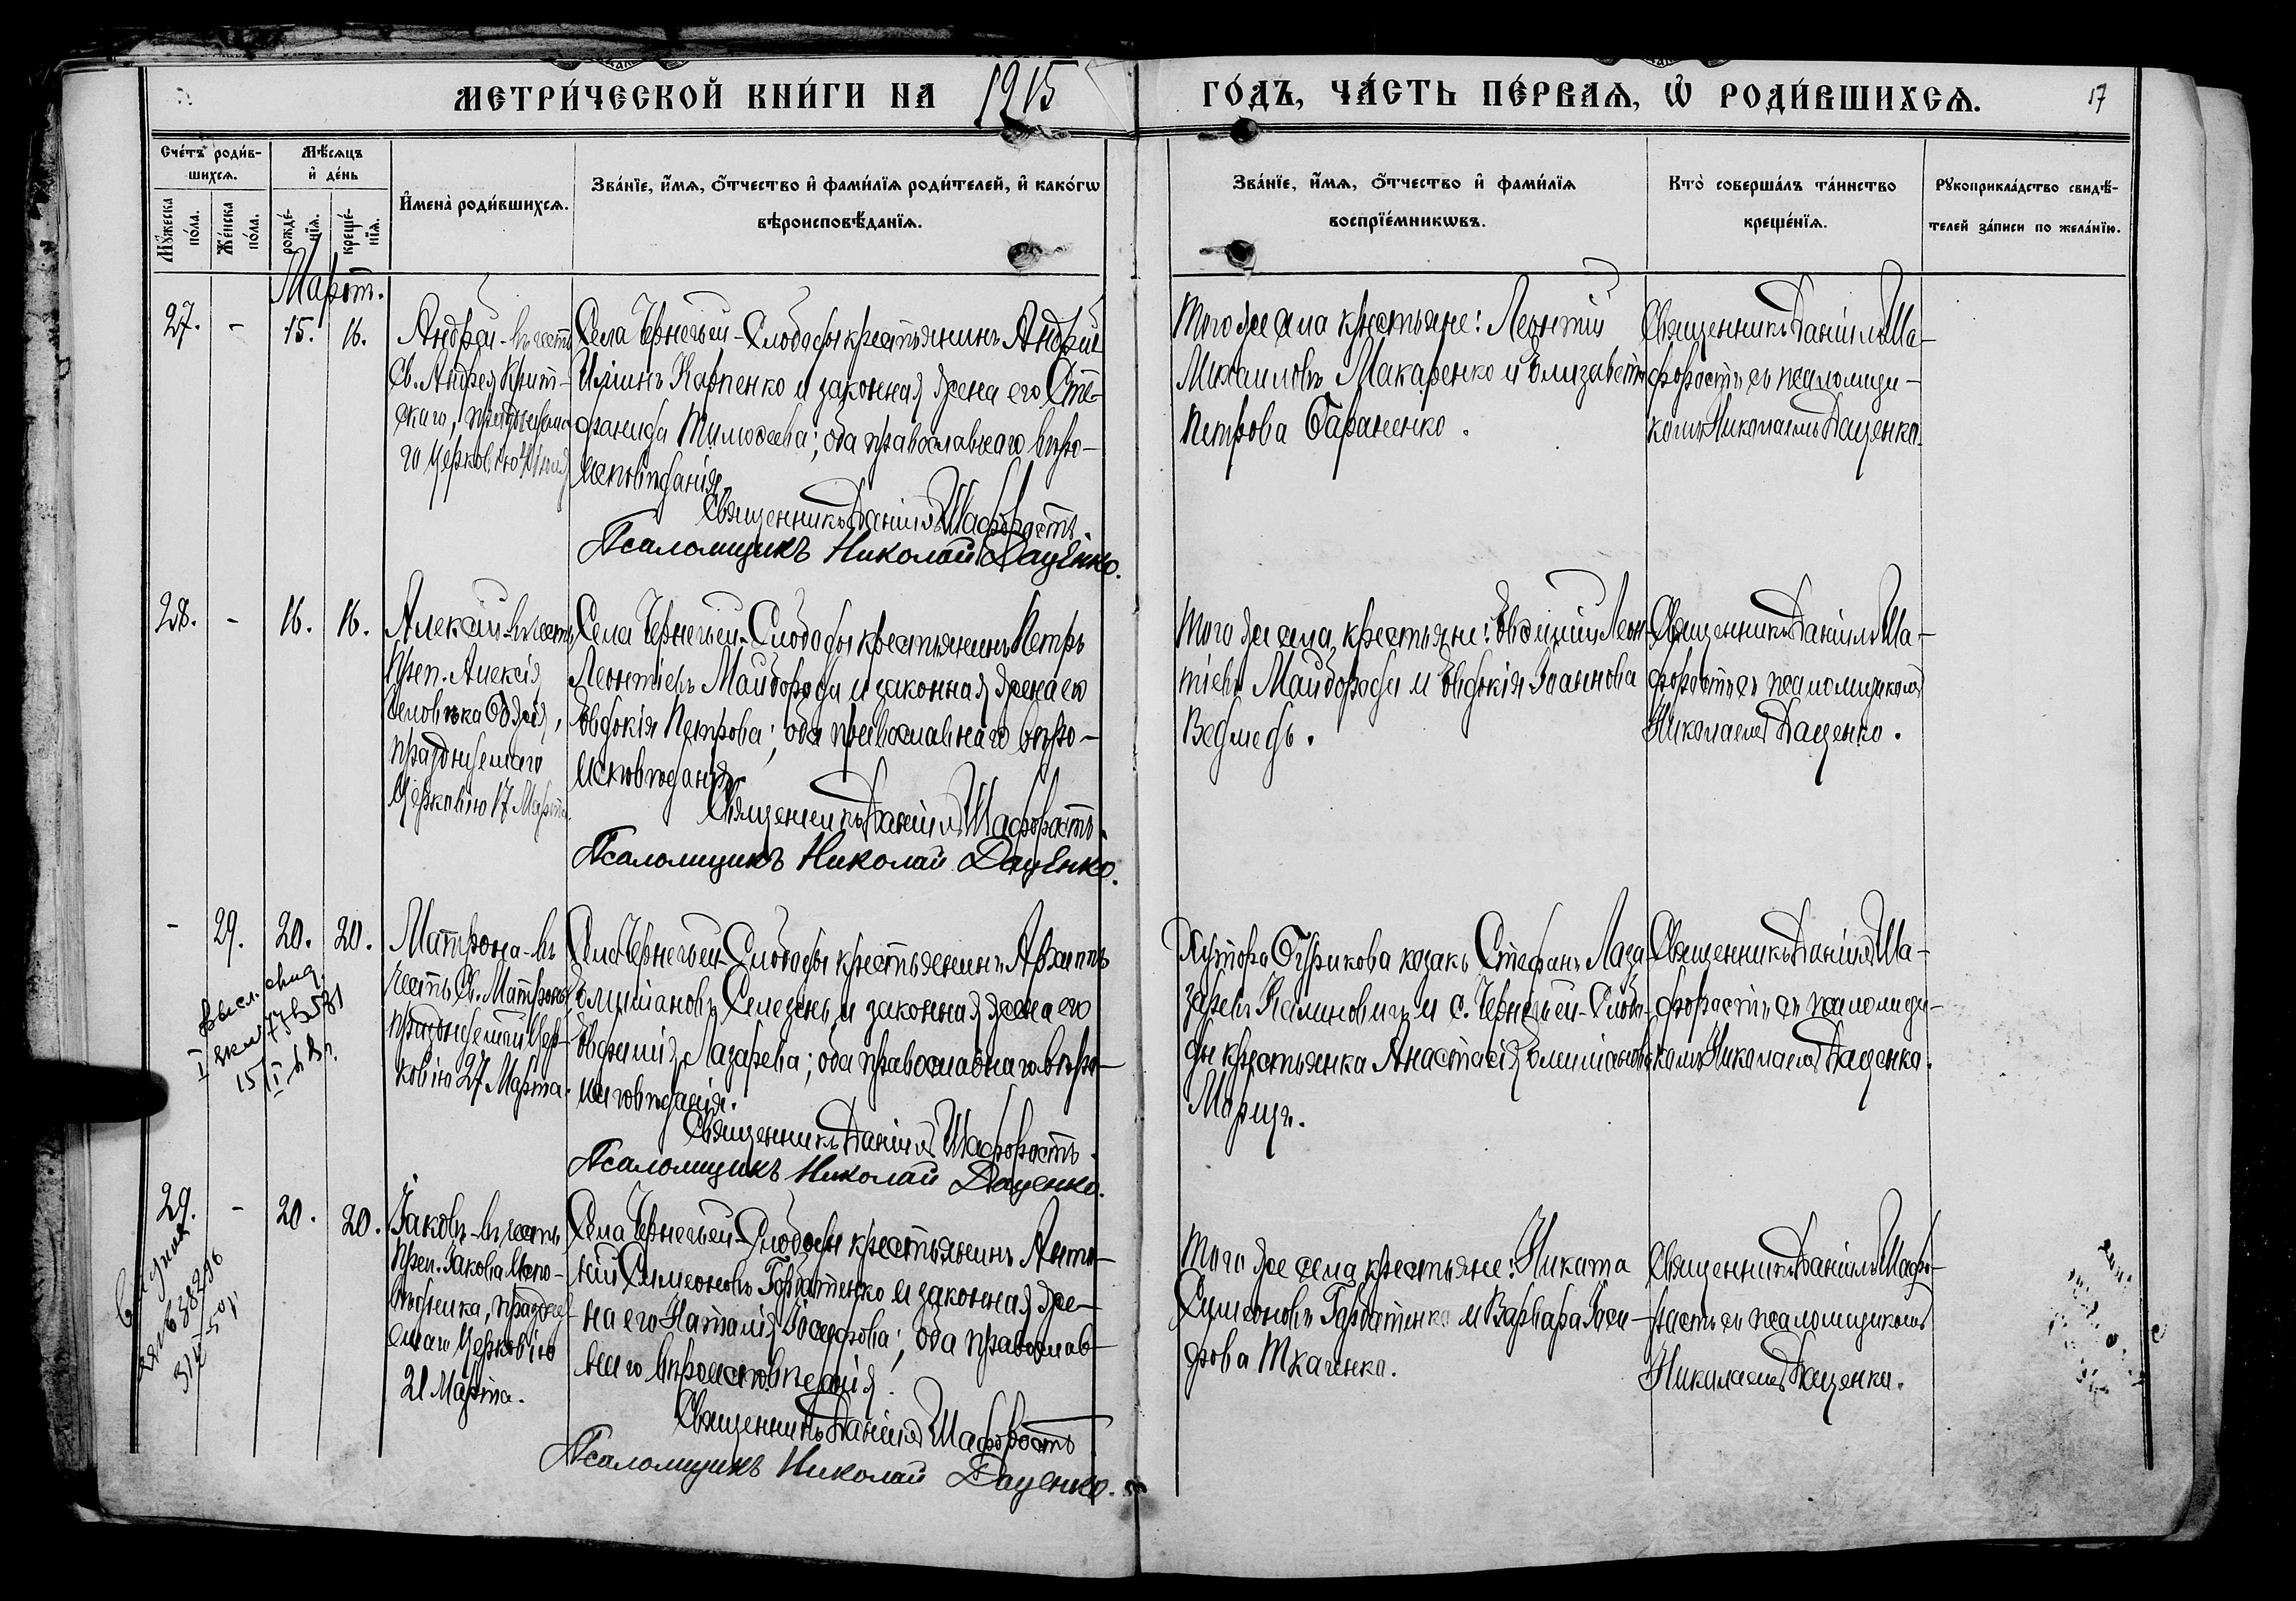 МЕТРИ́ЧЕСКОЙ КНИ́ГИ НА 1915 ГО́ДЪ, ЧА́СТЬ ПЕ́РВАЯ, Ѡ҆ РОДИ́ВШИХСЯ. 17
Сче́тъ роди́в-
шихся.
Мѣ́сяцъ
и҆ де́нь
Мꙋ́жеска
по́ла.
Же́нска
по́ла.
рожде́-
нїя.
креще́-
нїя.
И҆мена̀ роди́вшихся.
Зва́нїе, и҆́мя, ѻ҆́тчество и҆ фами́лїя роди́телей, и҆ како́гѡ
вѣроисповѣ́данїя.
Зва́нїе, и҆́мя, ѻ҆́тчество и҆ фами́лїя
воспрїе́мникѡвъ.
Кто̀ соверша́лъ та́инство
креще́нїя.
Рꙋкоприкла́дство свидѣ́-
телей за́писи по жела́нїю.
Мартъ.
27. - 15. 16.
Андрей - въ честь
Св. Андрея Крит-
скаго, празднуема-
го Церковію 4 Іюля
Села Чернечьей-Слободы крестьянинъ Андрей
Ильинъ Карпенко и законная жена его Сте-
фанида Тимоѳеева; оба православнаго вѣро-
исповѣданія.
Священникъ Даніилъ Шафоростъ.
Псаломщикъ Николай Даценко.
Того же села крестьяне: Леонтій
Михаиловъ Макаренко и Елизавета
Петрова Бараненко.
Священникъ Даніилъ Ша-
форостъ съ псаломщи-
комъ Николаемъ Даценко.
28. - 16. 16.
Алексій - въ честь
Преп. Алексія
Человѣка Божія,
празднуемаго
Церковію 17 Марта.
Села Чернечьей-Слободы крестьянинъ Петръ
Леонтіевъ Майборода и законная жена его
Евдокія Петрова; оба православнаго вѣро-
исповѣданія.
Священникъ Даніилъ Шафоростъ.
Псаломщикъ Николай Даценко.
Того же села крестьяне: Евфимій Леон-
тіевъ Майборода и Евдокія Іоаннова
Ведмедь.
Священникъ Даніилъ Ша-
форостъ съ псаломщикомъ
Николаемъ Даценко.
- 29. 20. 20.
Матрона - въ
честь Св. Матроны,
празднуемой Цер-
ковію 27 Марта.
Села Чернечьей-Слободы крестьянинъ Архиппъ
Емиліановъ Селезень и законная жена его
Евфимія Лазарева; оба православнаго вѣро-
исповѣданія.
Священникъ Даніилъ Шафоростъ.
Псаломщикъ Николай Даценко.
Хутора козакъ Стефанъ Лаза-
заревъ Калиновичъ и с. Чернечьей-Слобо-
ды крестьянка Анастасія Емиліанова
Священникъ Даніилъ Ша-
форостъ съ псаломщи-
комъ Николаемъ Даценко.
29. - 20. 20.
Іаковъ - въ честь
Преп. Іакова Испо-
вѣдника, праздну-
емаго Церковію
21 Марта.
Села Чернечьей-Слободы крестьянинъ Анто-
ній Симеоновъ Горбатенко и законная же-
на его Наталія Іосифова; оба православ-
наго вѣроисповѣданія.
Священникъ Даніилъ Шафоростъ
Псаломщикъ Николай Даценко.
Того же села крестьяне: Никита
Симеоновъ Горбатенко и Варвара Іоси-
фова Ткаченко.
Священникъ Даніилъ Шафо-
ростъ съ псаломщикомъ
Николаемъ Даценко.